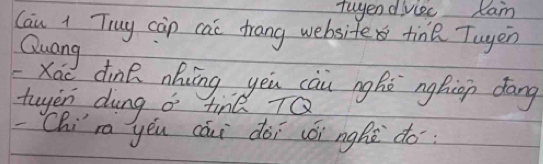 tuyen dviec làm
Câu 1 Truy cập các trang website tỉnh Tuyên
Quang
- Xác định những yêu cầu nghề nghiệp đang
tuyển dụng ở tỉnh TQ
- Chỉ ra yêu cầu đối với nghề đó: